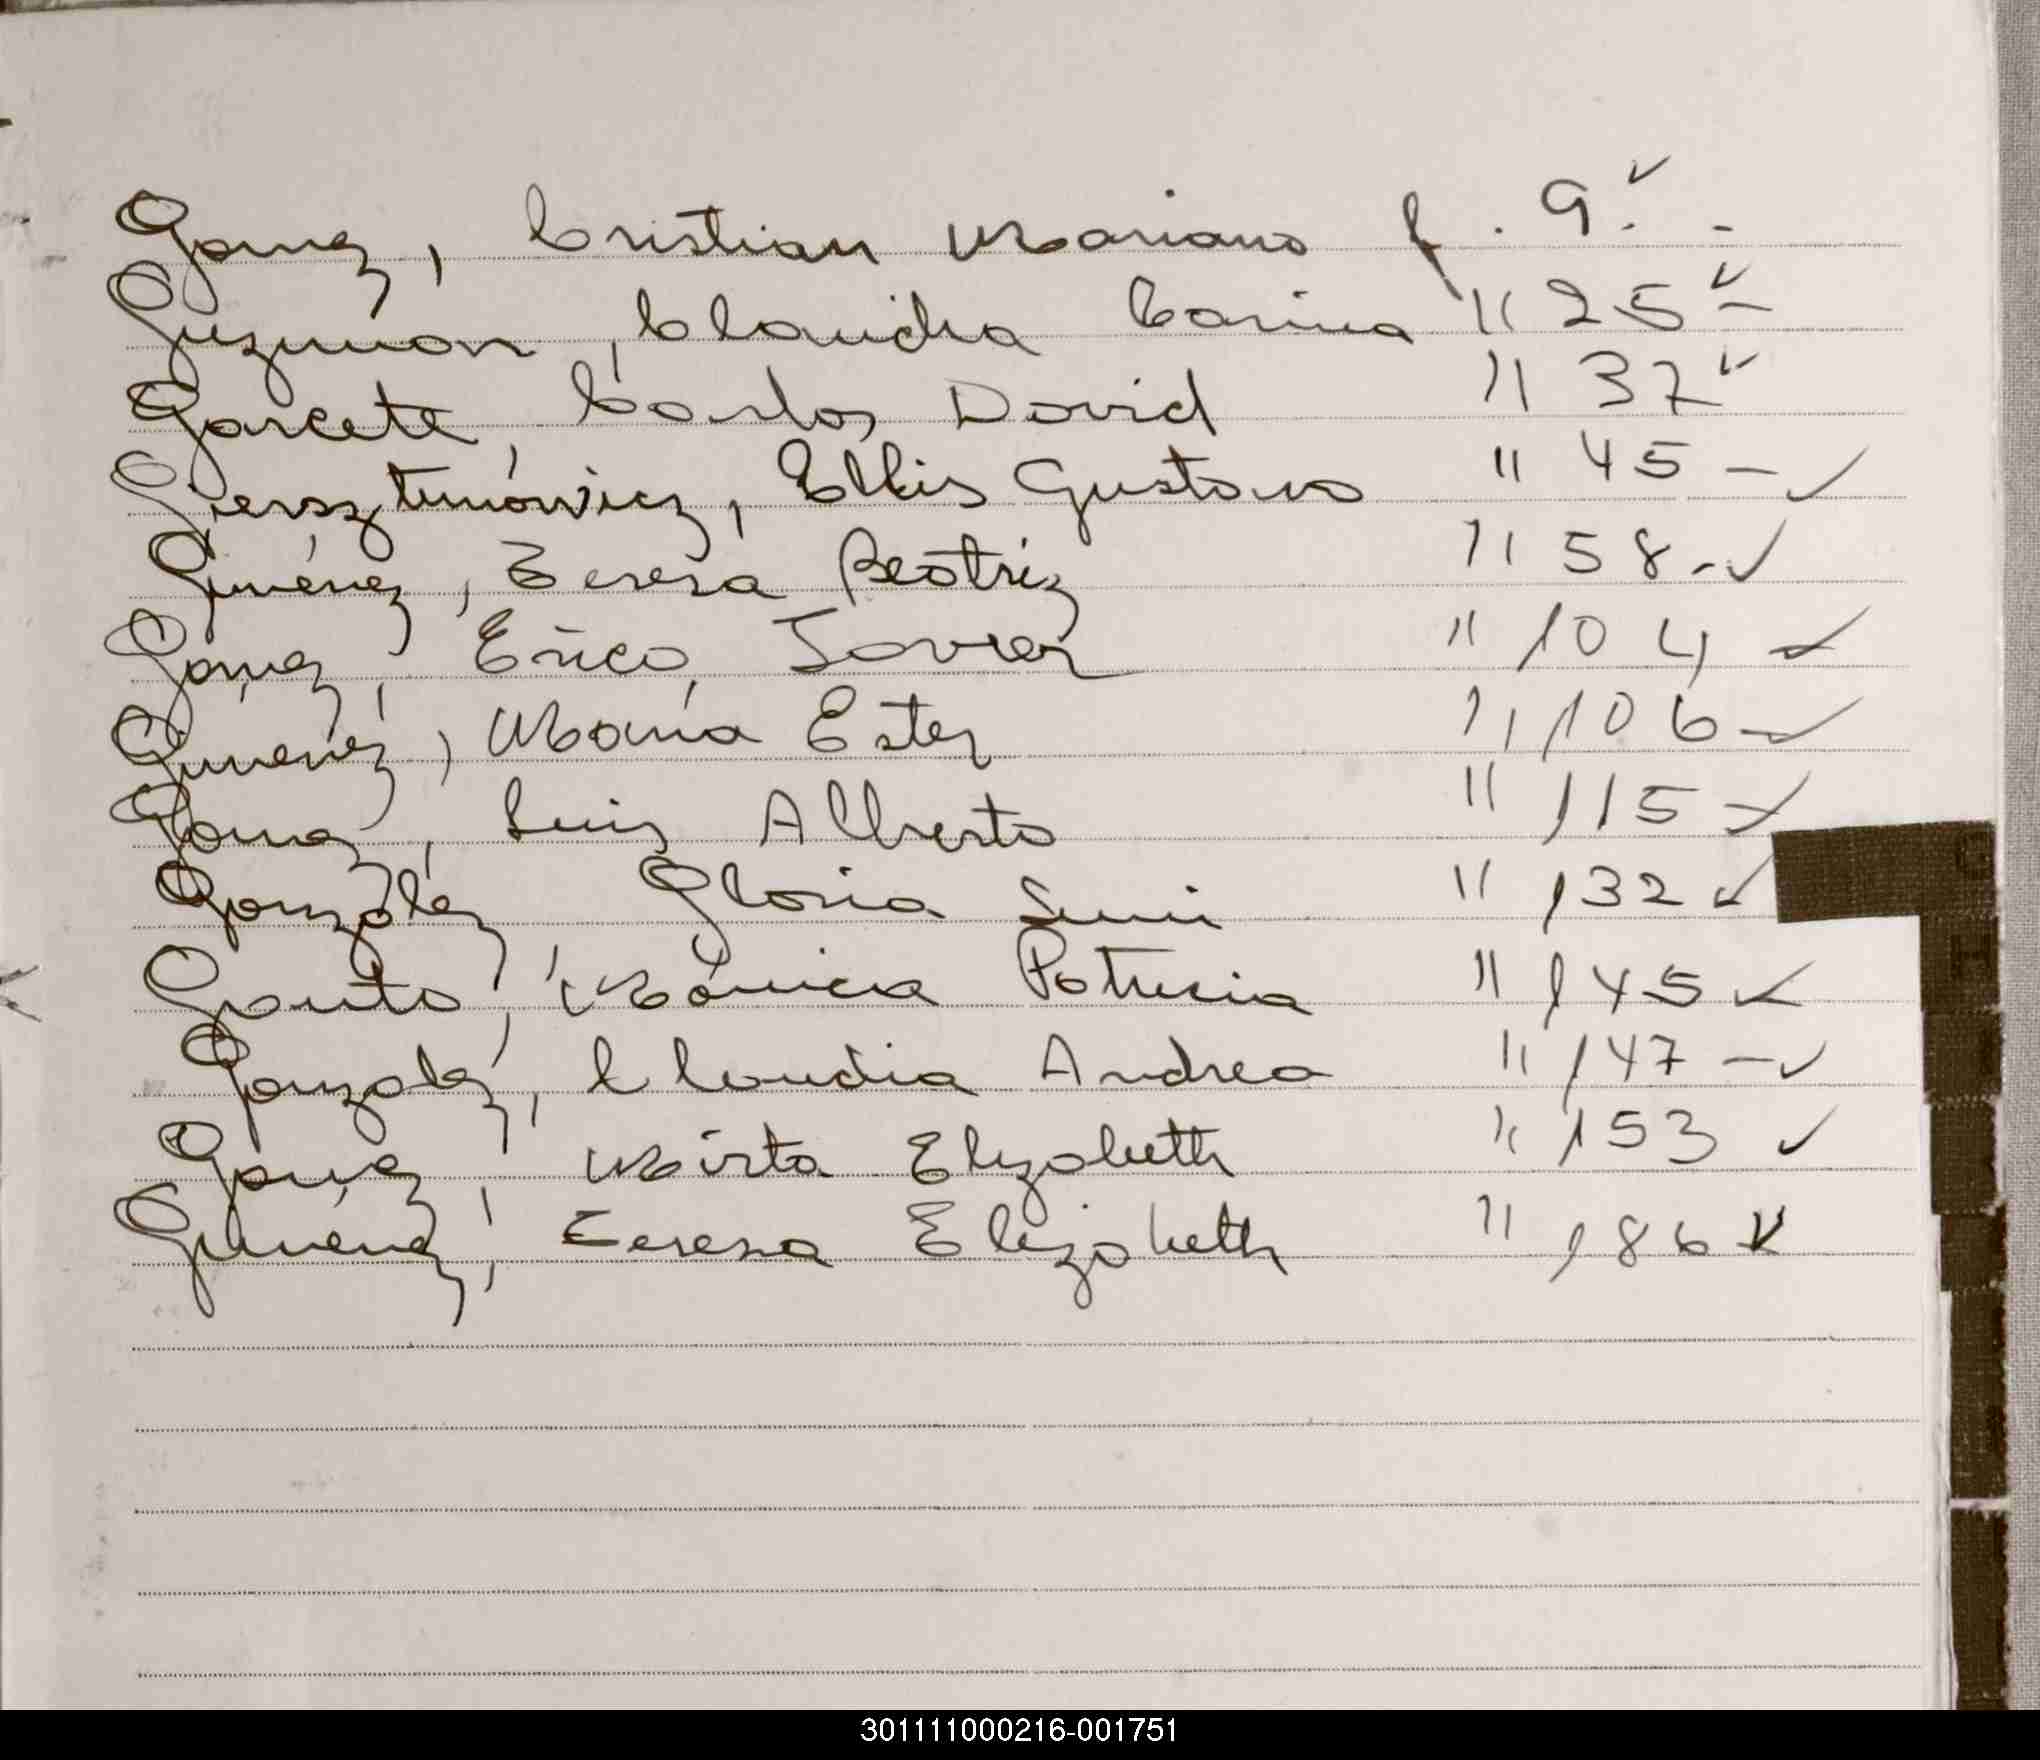 Gomez, Cristian Mariano f. 9. -
Guzmán, Claudia Carina " 25 -
Garcete, Carlos David " 37
Giersztunówicz, Ellis Gustavo " 45 -
Giménez, Teresa Beatriz " 58 -
Gomez, Erico Javier " 104
Giménez, María Ester " 106
Gomez, Luis Alberto " 115
González, Gloria " 132
Gauto, Mónica Patricia " 145
Gonzalez, Claudia Andrea " 147 -
Gomez, Mirta Elizabeth " 153
Giménez, Teresa Elizabeth " 186
301111000216-001751